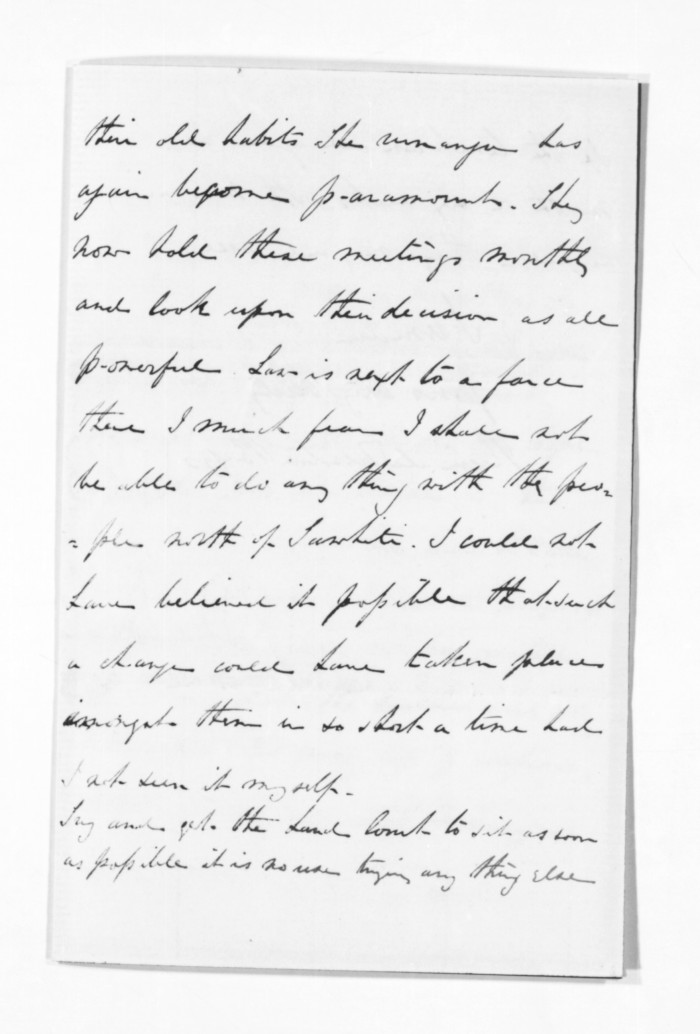 their old habits The runanga has
again become paramount. They
now hold these meetings monthly
and look upon their decision as all
powerful Law is next to a farce
there I much fear I shall not
be able to do any thing with the peo=
=ple north of Tawhiti. I could not
have believed it possible that such
a change could have taken place
amongst them in so short a time had
I not seen it myself.
Try and get the Land Court to sit as soon
as possible it is no use trying any thing else